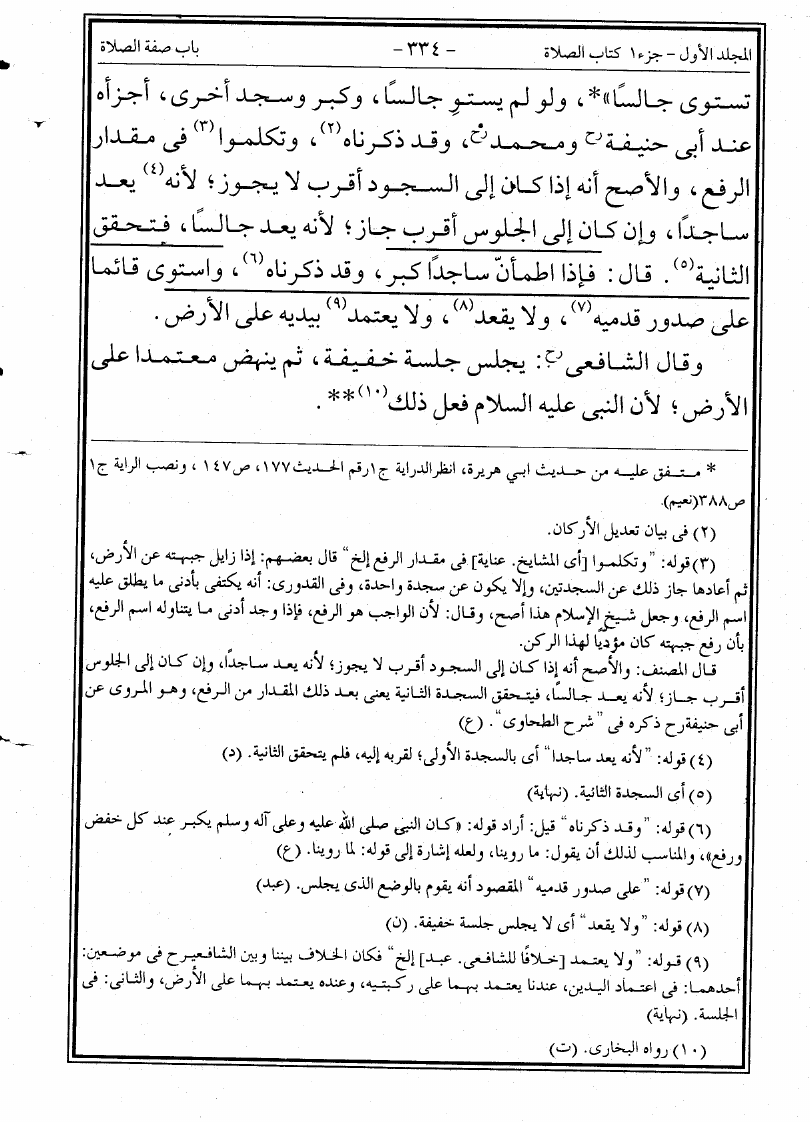 المجلد الأول - جزء ١ كتاب الصلاة - ٣٣٤ - باب صفة الصلاة
تستوى جالسًا»*، ولو لم يستوِ جالسًا، وكبر وسجد أخرى، أجزأه
عند أبى حنيفة رح ومحمد رح، وقد ذكرناه(٢)، وتكلموا(٣) فى مقدار
الرفع، والأصح أنه إذا كان إلى السجود أقرب لا يجوز؛ لأنه(٤) يعد
ساجدًا، وإن كان إلى الجلوس أقرب جاز؛ لأنه يعد جالسًا، فتحقق
الثانية(٥). قال: فإذا اطمأنّ ساجدًا كبر، وقد ذكرناه(٦)، واستوى قائما
على صدور قدميه(٧)، ولا يقعد(٨)، ولا يعتمد(٩) بيديه على الأرض.
وقال الشافعى رح: يجلس جلسة خفيفة، ثم ينهض معتمدا على
الأرض؛ لأن النبى عليه السلام فعل ذلك(١٠)**.
* متفق عليه من حديث ابي هريرة، انظر الدراية ج١ رقم الحديث ١٧٧، ص١٤٧، ونصب الراية ج١
ص٣٨٨(نعيم).
(٢) فى بيان تعديل الأركان.
(٣) قوله: "وتكلموا [أى المشايخ. عناية] فى مقدار الرفع إلخ" قال بعضهم: إذا زايل جبهته عن الأرض،
ثم أعادها جاز ذلك عن السجدتين، وإلا يكون عن سجدة واحدة، وفى القدورى: أنه يكتفى بأدنى ما يطلق عليه
اسم الرفع، وجعل شيخ الإسلام هذا أصح، وقال: لأن الواجب هو الرفع، فإذا وجد أدنى ما يتناوله اسم الرفع،
بأن رفع جبهته كان مؤديًا لهذا الركن.
قال المصنف: والأصح أنه إذا كان إلى السجود أقرب لا يجوز؛ لأنه يعد ساجدًا، وإن كان إلى الجلوس
أقرب جاز؛ لأنه يعد جالسًا، فيتحقق السجدة الثانية يعنى بعد ذلك المقدار من الرفع، وهو المروى عن
أبى حنيفة رح ذكره فى "شرح الطحاوى". (ع)
(٤) قوله: "لأنه يعد ساجدا" أى بالسجدة الأولى؛ لقربه إليه، فلم يتحقق الثانية. (د)
(٥) أى السجدة الثانية. (نهاية)
(٦) قوله: "وقد ذكرناه" قيل: أراد قوله: «كان النبى صلى الله عليه وعلى آله وسلم يكبر عند كل خفض
ورفع»، والمناسب لذلك أن يقول: ما روينا، ولعله إشارة إلى قوله: لما روينا. (ع)
(٧) قوله: "على صدور قدميه" المقصود أنه يقوم بالوضع الذى يجلس. (عبد)
(٨) قوله: "ولا يقعد" أى لا يجلس جلسة خفيفة. (ن)
(٩) قوله: "ولا يعتمد [خلافًا للشافعى. عبد] إلخ" فكان الخلاف بيننا وبين الشافعى رح فى موضعين:
أحدهما: فى اعتماد اليدين، عندنا يعتمد بهما على ركبتيه، وعنده يعتمد بهما على الأرض، والثانى: فى
الجلسة. (نهاية)
(١٠) رواه البخارى. (ت)